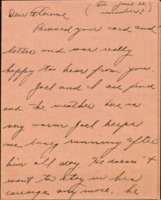 Dear Florence
Received your card and
letter and was really
happy to hear from you
Joel and I are fine
and the weather here is
very warm Joel keeps
me busy running after
him all day He doesn't
want to stay in his
carriage any more, he